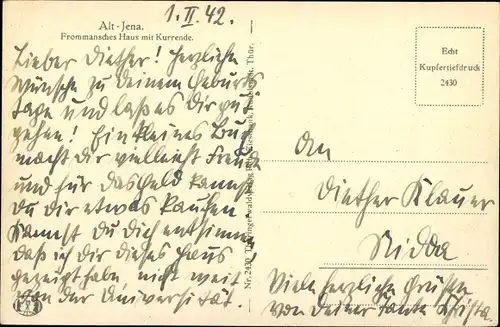 Alt-Jena.
Frommansches Haus mit Kurrende.
1. II. 42.
Lieber Diether! Herzliche
Wünsche zu deinem Geburts
tage und laß es Dir gut
gehen! Ein kleines Buch
macht dir vielleicht Freude
und für das Geld kannst
Du dir etwas kaufen
Kannst Du Dich entsinnen
daß ich Dir dieses Haus
gezeigt habe nicht weit
von der Universität.
Nr. 2430
Echt
Kupfertiefdruck
2430
An
Diether Klauer
Nidda
Viele herzliche Grüße
von Deiner Tante Christa.